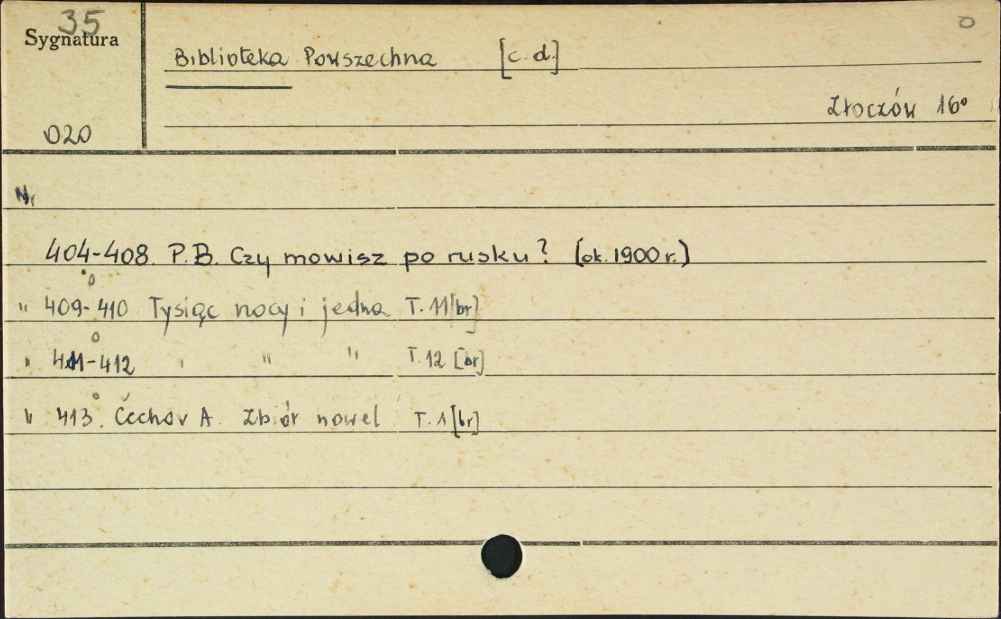 35
Sygnatura
020
Biblioteka Powszechna [c. d.]
Złoczów 16°
Nr
404-408. P.B. Czy mowisz po rusku? [ok. 1900 r.]
" 409-410 Tysiąc nocy i jedna T. 11 [br]
" 411-412 " " " T. 12 [br]
" 413. Čechov A. Zbiór nowel T. 1 [br]